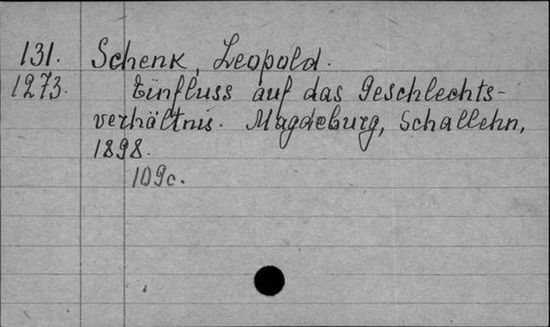 131. Schenk, Leopold.
1273. Einfluss auf das Geschlechts-
verhältnis. Magdeburg, Schallehn,
1898.
109c.